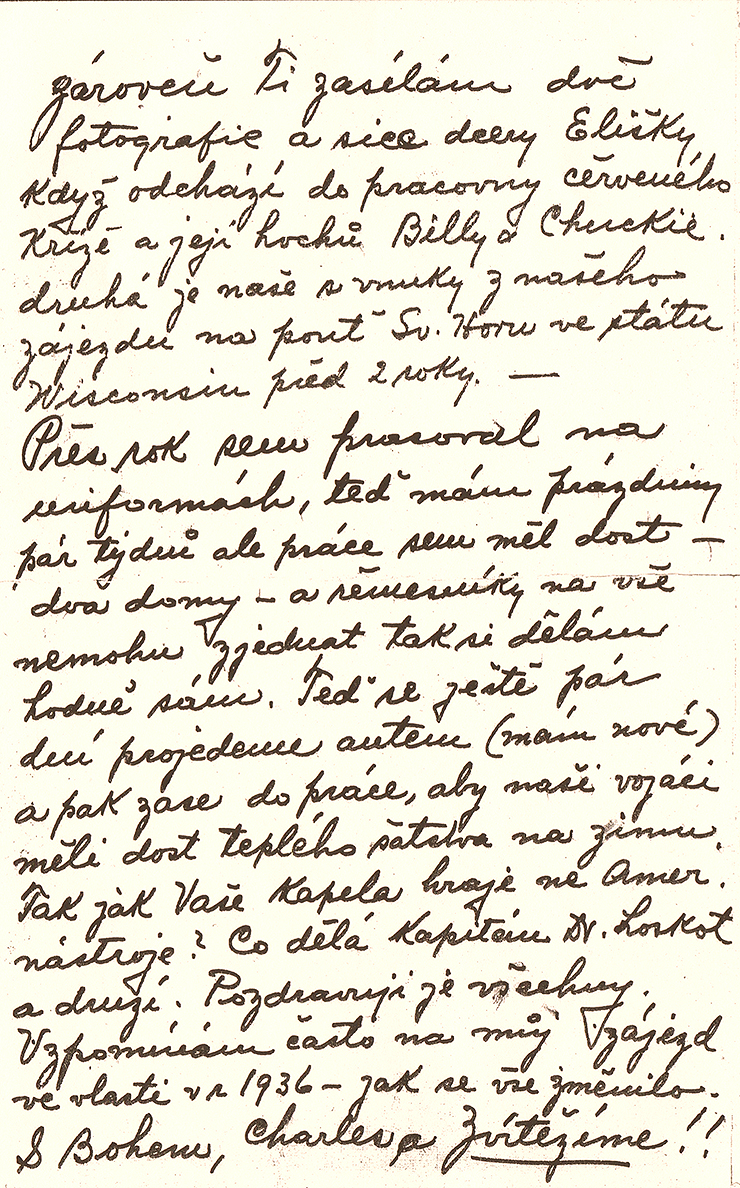 zároveň Ti zasélám dvě
fotografie a sice dcery Elišky
Když odchází do pracovny cěrveného
Křížě a její hochů Billy a Chuckie.
druhá je naše s vnuky z našeho
zájezdu na pouť Sv. Horu ve státu
Wisconsin před 2 roky. —
Přes rok sem prasoval na
uniformách, teď mám prázdniny
pár týdnů ale práce sem měl dost –
dva domy – a řěmeslníky na vše
nemohu zjednat tak si dělám
hodně sám. Teď se ještě pár
dní projedeme autem (mám nové)
a pak zase do práce, aby naši vojáci
měli dost teplého šatstva na zimu.
Tak jak Vaše Kapela hraje ne Amer.
nástroje? Co dělá Kapitán Dr. Loskot
a druzí. Pozdravuji je všechny.
Vzpomínám často na můj zájezd
ve vlasti v r 1936 – jak se vše změnilo.
S Bohem, Charles a Zvítězíme!!